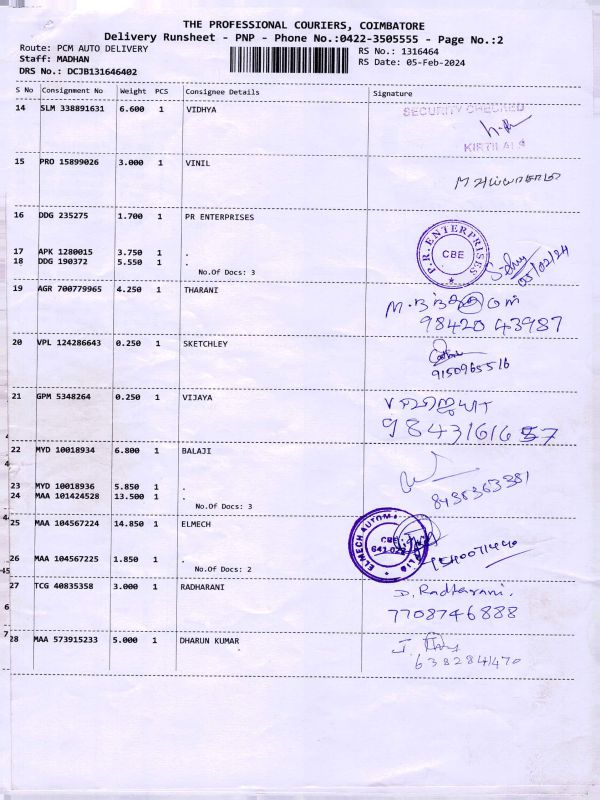 THE PROFESSIONAL COURIERS, COIMBATORE
Delivery Runsheet - PNP - Phone No.:0422-3505555 - Page No.:2
Route: PCM AUTO DELIVERY
Staff: MADHAN
DRS No.: DCJB131646402
RS No.: 1316464
RS Date: 05-Feb-2024
S No Consignment No Weight PCS Consignee Details Signature
14 SLM 338891631 6.600 1 VIDHYA
SECURITY CHECKED
KIRTILALS
15 PRO 15899026 3.000 1 VINIL
16 DDG 235275 1.700 1 PR ENTERPRISES
P.R. ENTERPRISES
CBE
05/02/24
17 APK 1280015 3.750 1 .
18 DDG 190372 5.550 1 .
No.Of Docs: 3
19 AGR 700779965 4.250 1 THARANI
98420 43987
20 VPL 124286643 0.250 1 SKETCHLEY
9150965516
21 GPM 5348264 0.250 1 VIJAYA
22 MYD 10018934 6.800 1 BALAJI
23 MYD 10018936 5.850 1 .
24 MAA 101424528 13.500 1 .
No.Of Docs: 3
25 MAA 104567224 14.850 1 ELMECH
ELMECH
CBE
26 MAA 104567225 1.850 1 .
No.Of Docs: 2
27 TCG 40835358 3.000 1 RADHARANI
D. Radharani.
7708746888
28 MAA 573915233 5.000 1 DHARUN KUMAR
6382841470